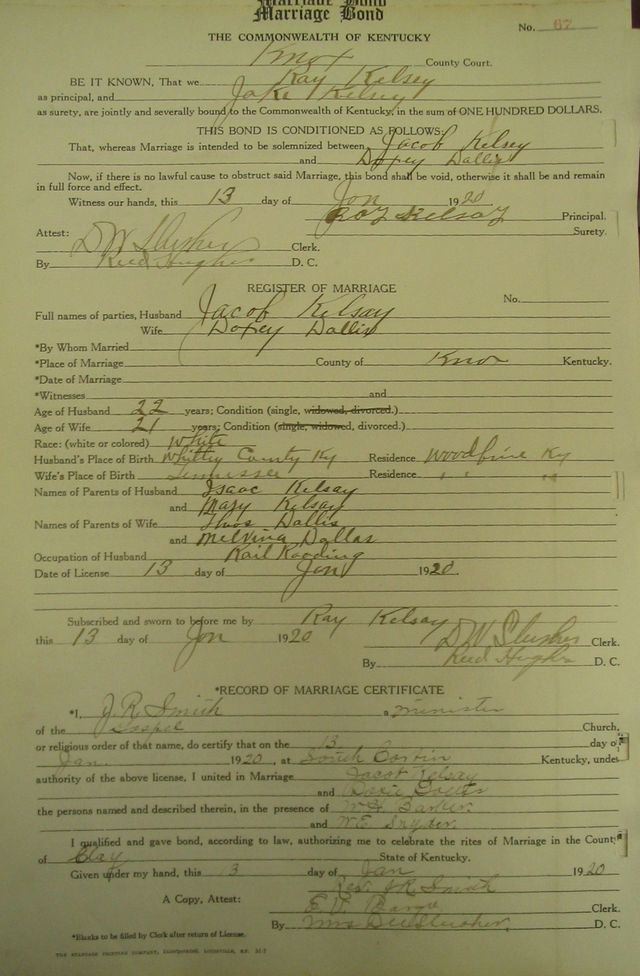 Marriage Bond
Marriage Bond
No. 67
THE COMMONWEALTH OF KENTUCKY
Knox County Court.
BE IT KNOWN, That we Ray Kelsey
as principal, and Jake Kelsey
as surety, are jointly and severally bound to the Commonwealth of Kentucky, in the sum of ONE HUNDRED DOLLARS.
THIS BOND IS CONDITIONED AS FOLLOWS:
That, whereas Marriage is intended to be solemnized between Jacob Kelsey
and Dopey Dallis
Now, if there is no lawful cause to obstruct said Marriage, this bond shall be void, otherwise it shall be and remain
in full force and effect.
Witness our hands, this 13 day of Jan 1920
Roy Kelsay Principal.
Attest: Surety.
D W Slusher Clerk.
By Reed Hughes D. C.
REGISTER OF MARRIAGE
No.
Full names of parties, Husband Jacob Kelsay
Wife Dopey Dallis
*By Whom Married
*Place of Marriage County of Knox Kentucky.
*Date of Marriage
*Witnesses and
Age of Husband 22 years; Condition (single, widowed, divorced.)
Age of Wife 21 years; Condition (single, widowed, divorced.)
Race: (white or colored) White
Husband's Place of Birth Whitley County Ky Residence Woodbine Ky
Wife's Place of Birth Tennessee Residence " " "
Names of Parents of Husband Isaac Kelsay
and Mary Kelsay
Names of Parents of Wife Thos Dallis
and Melvina Dallas
Occupation of Husband Rail Roading
Date of License 13 day of Jan 1920.
Subscribed and sworn to before me by Ray Kelsay
this 13 day of Jan 1920 D W Slusher Clerk.
By Reed Hughes D. C.
*RECORD OF MARRIAGE CERTIFICATE
*I, J. R. Smith a minister
of the Gospel Church,
or religious order of that name, do certify that on the 13 day of
Jan. 1920, at South Corbin Kentucky, under
authority of the above license, I united in Marriage Jacob Kelsay
and Doxie
the persons named and described therein, in the presence of W. H. Barker.
and W. E. Snyder.
I qualified and gave bond, according to law, authorizing me to celebrate the rites of Marriage in the County
of Clay State of Kentucky.
Given under my hand, this 13 day of Jan 1920
Rev. J R Smith
A Copy, Attest: Clerk.
By Mrs Slusher, D. C.
*Blanks to be filled by Clerk after return of License.
THE STANDARD PRINTING COMPANY, LOUISVILLE, KY.